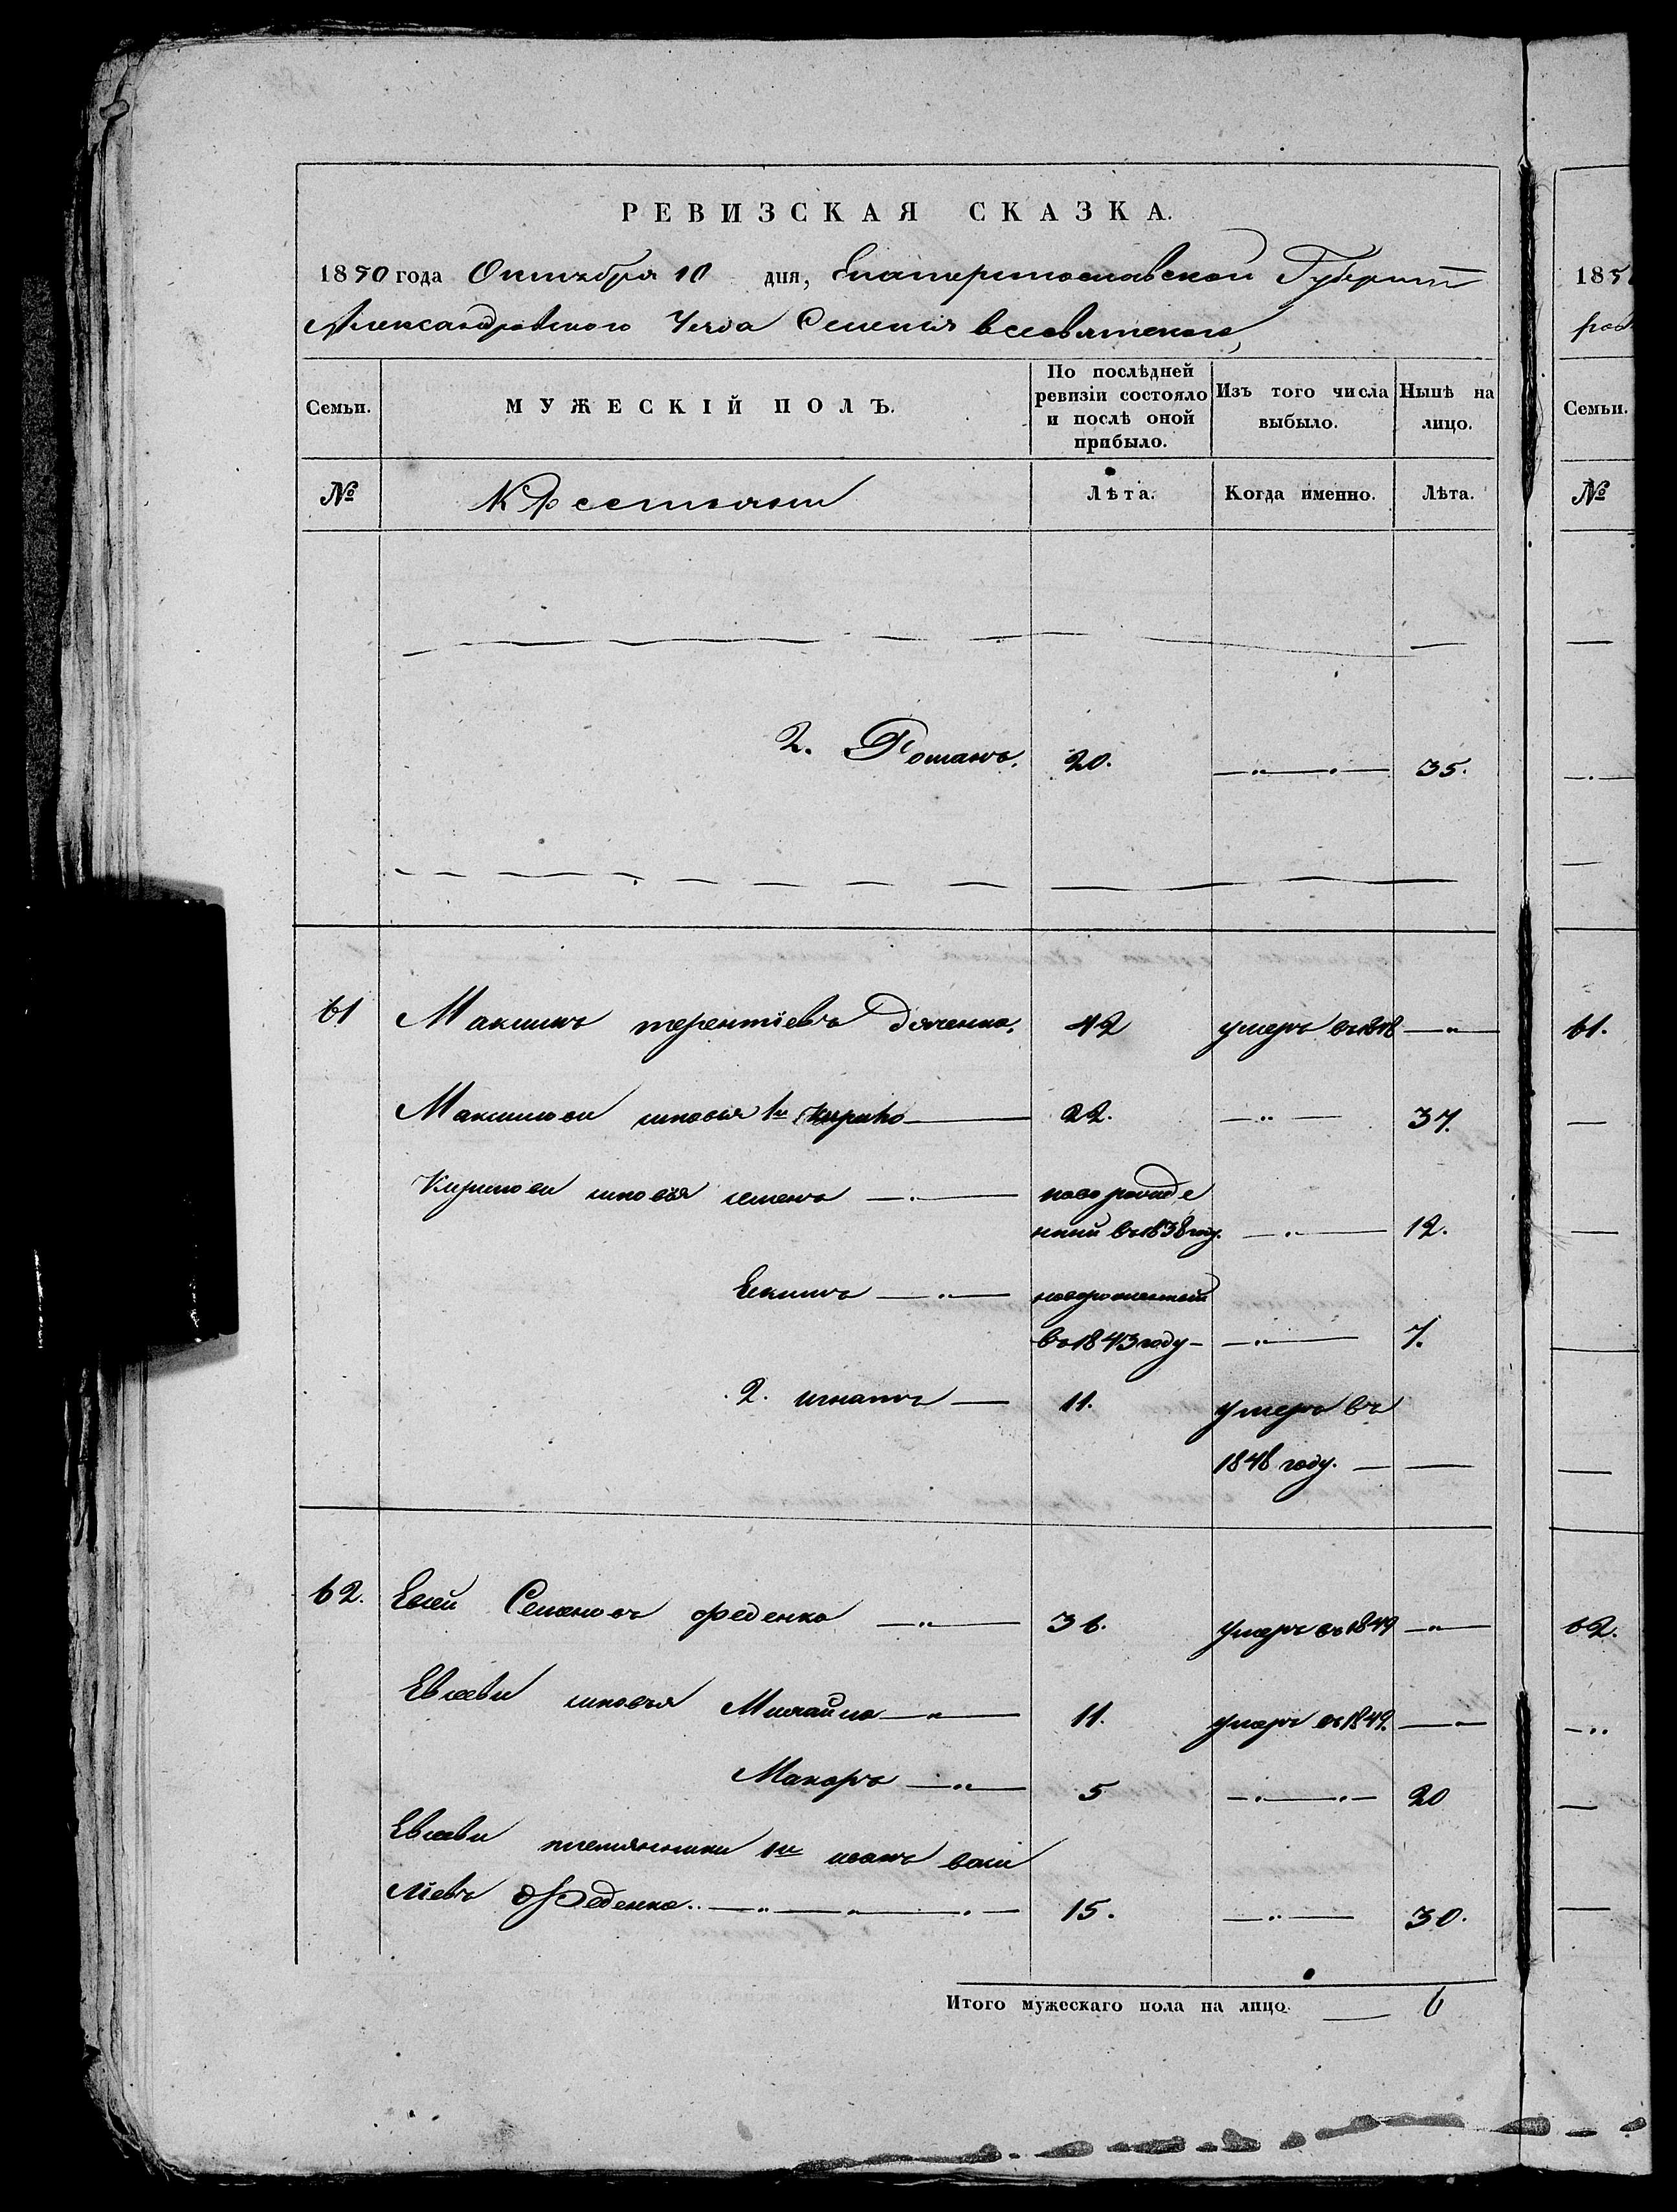 РЕВИЗСКАЯ СКАЗКА.
1850 года Октября 10 дня, Екатеринославской Губернии
Александровского Уезда Селения Всесвятского
Семьи. МУЖЕСКІЙ ПОЛЪ. По послѣдней ревизіи состояло и послѣ оной прибыло. Изъ того числа выбыло. Нынѣ на лицо.
№ Крестьяни Лѣта. Когда именно. Лѣта.
2. Романъ. 20. 35.
61 Максимъ терентіевъ дяченко. 42 умеръ въ 1848
Максимови синовья 1й Кирило 22. 37.
Кирилови синовья семенъ новорожде
нний въ 1838 году. 12.
Екимъ новорожденный
въ 1843 году 7.
2. игнатъ 11. умеръ въ
1848 году.
62. Евсей Семеновъ феденко 36. умеръ въ 1849
Евсеви синовья Михайло 11. умеръ въ 1849.
Макаръ 5 20
Евсеви племянники 1й иванъ васи
ліевъ Феденко. 15. 30.
Итого мужескаго пола на лицо. 6
185
Семьи.
№
61.
62.